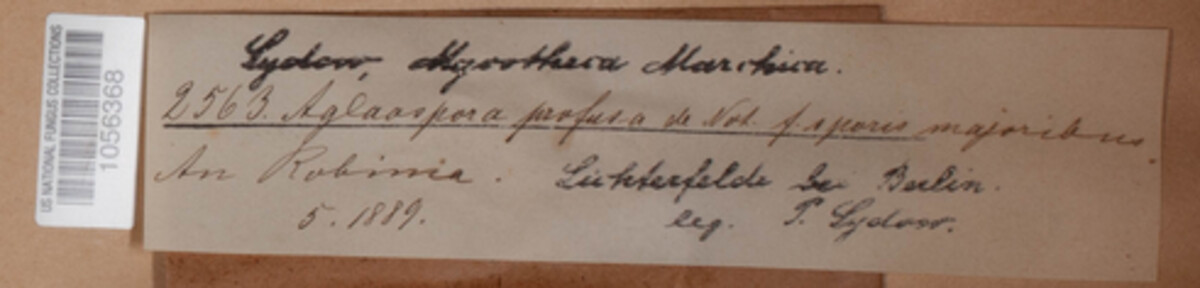 US NATIONAL FUNGUS COLLECTIONS
1056368
Sydow, Mycotheca Marchica.
2563. Aglaospora profusa de Not. f. sporis majoribus.
An Robinia.
Lichterfelde bei Berlin.
5. 1889.
leg. P. Sydow.